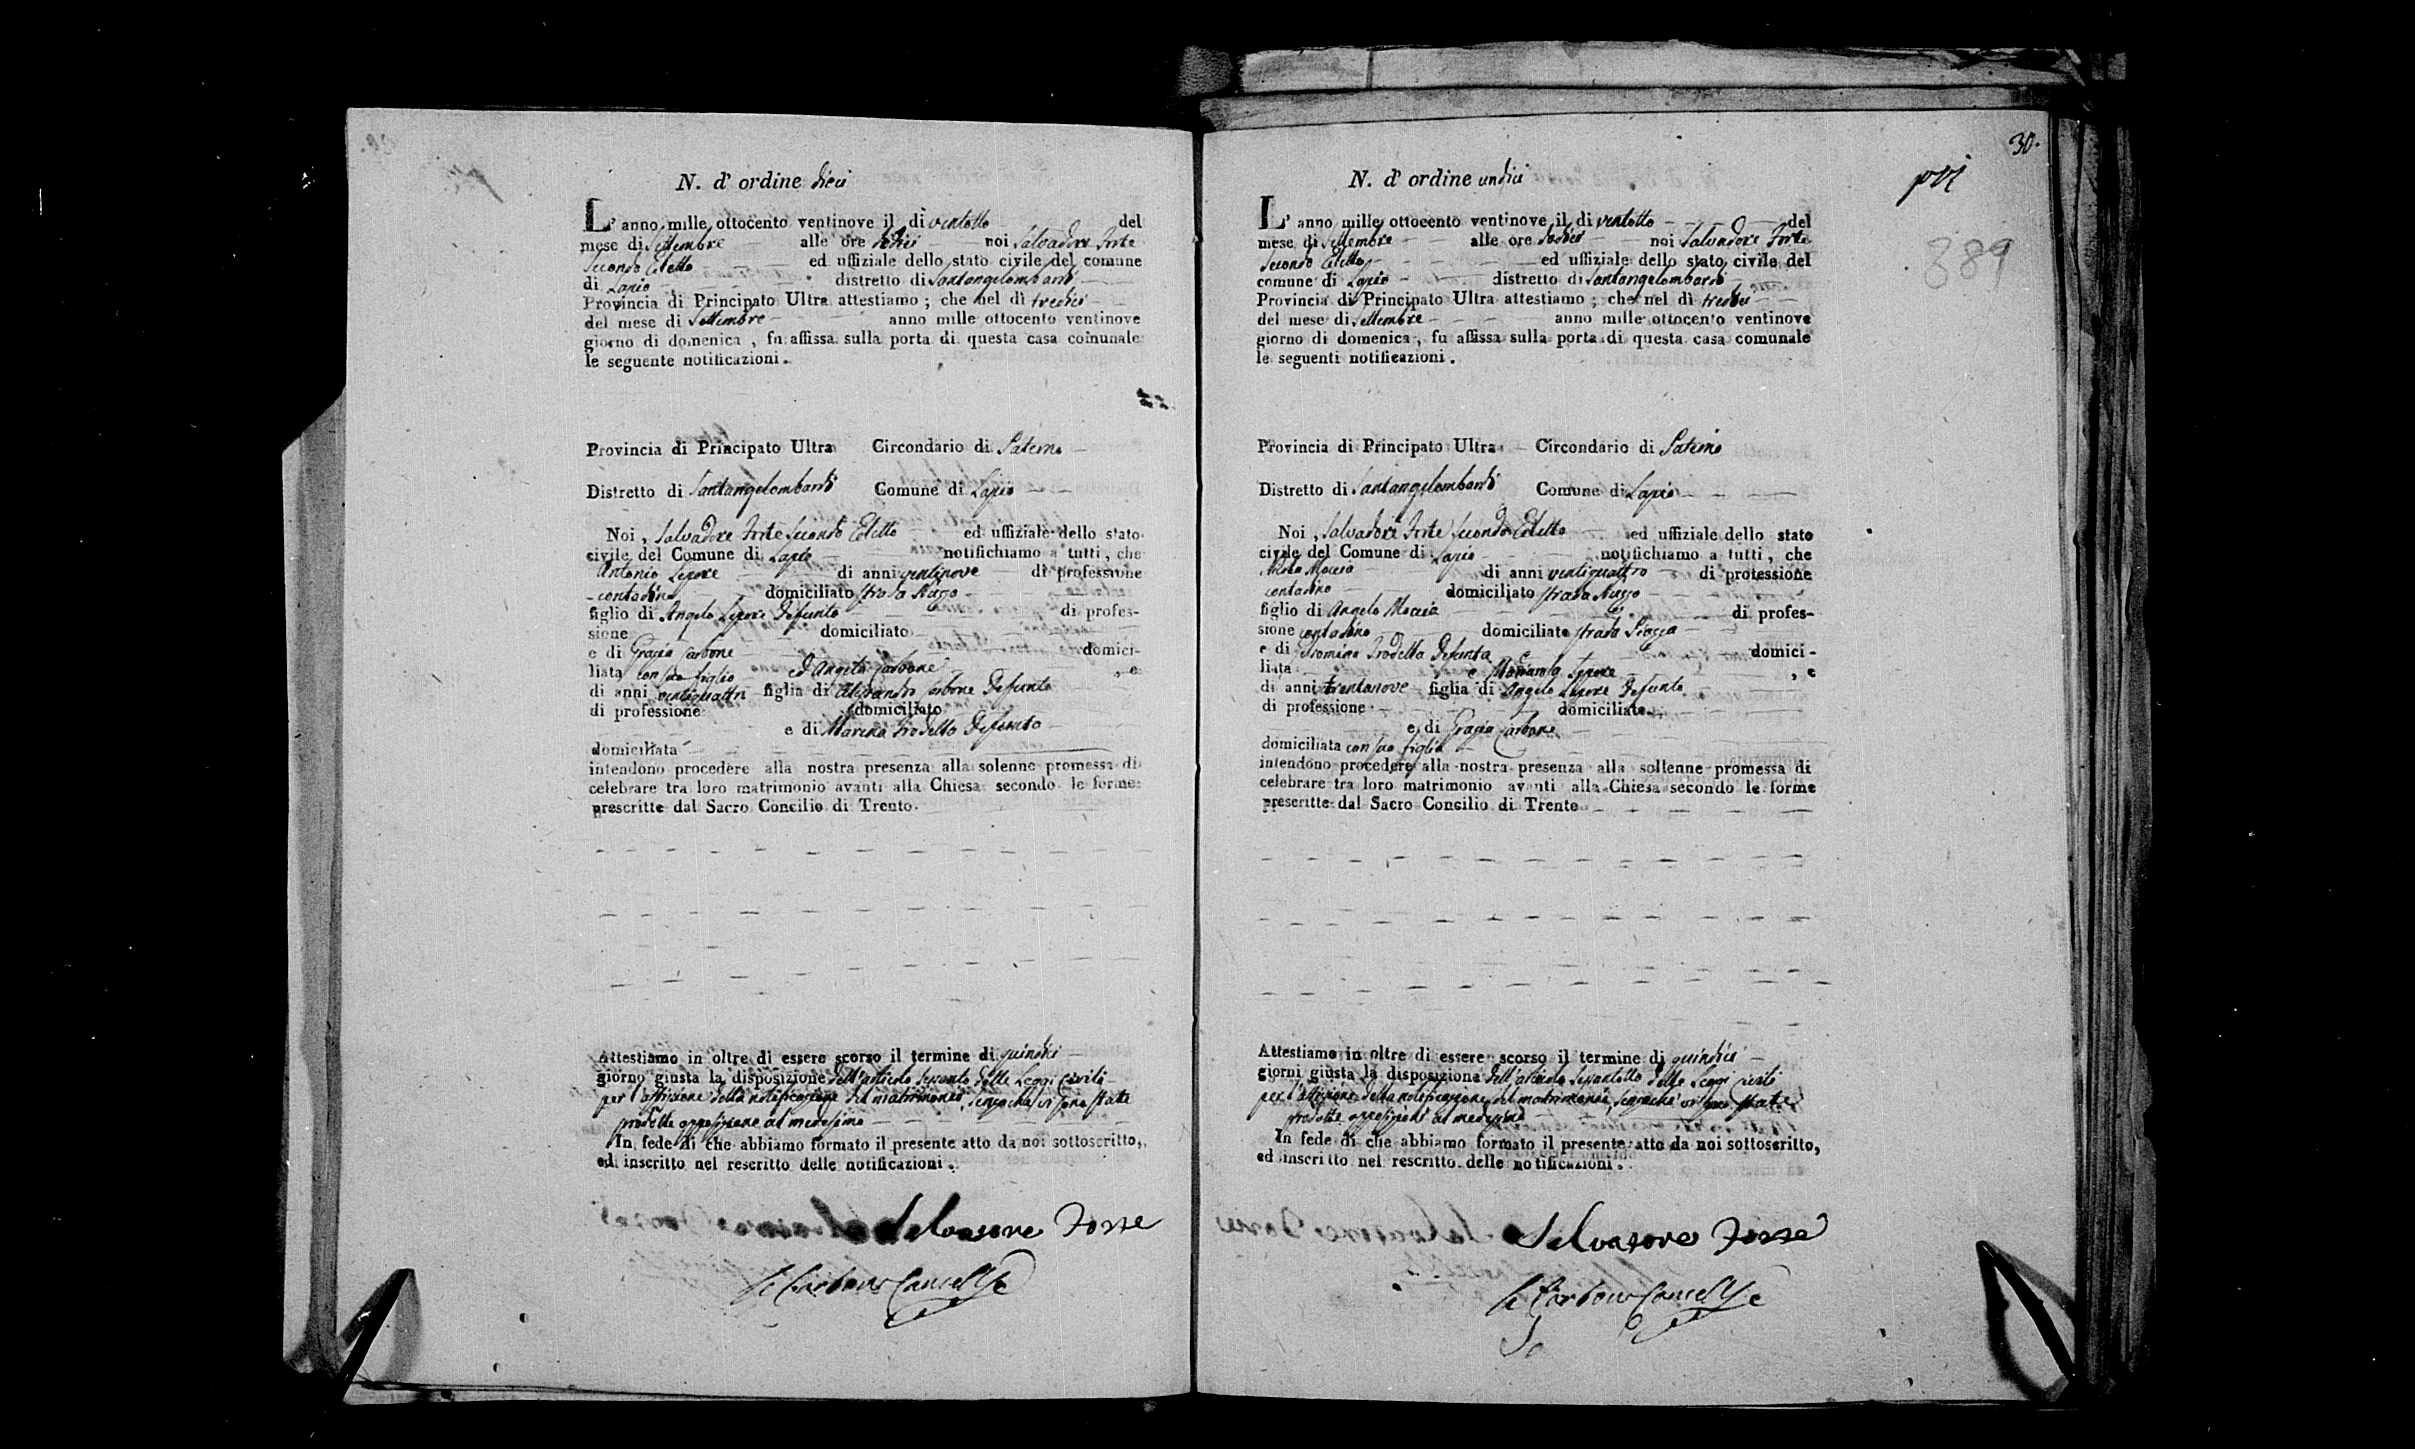 N. d' ordine dieci
L' anno mille ottocento ventinove il dì ventotto del
mese di Settembre alle ore sedici noi Salvadore Forte
Secondo Eletto ed uffiziale dello stato civile del comune
di Lapio distretto di Santangelombardi
Provincia di Principato Ultra attestiamo ; che nel dì tredici
del mese di Settembre anno mille ottocento ventinove
giorno di domenica , fu affissa sulla porta di questa casa comunale
le seguente notificazioni .
Provincia di Principato Ultra Circondario di Paterno
Distretto di Santangelombardi Comune di Lapio
Noi , Salvadore Forte Secondo Eletto ed uffiziale dello stato
civile del Comune di Lapio notifichiamo a tutti , che
Antonio Lepore di anni ventinove di professione
contadino domiciliato strada
figlio di Angelo Lepore Defunto di profes-
sione domiciliato
e di Grazia Carbone domici-
liata con suo figlio ed Angela Carbone , e
di anni ventiquattri figlia di Alesandro Carbone Defunto
di professione domiciliato
e di Marina Trodella Defunta
domiciliata
intendono procedere alla nostra presenza alla solenne promessa di
celebrare tra loro matrimonio avanti alla Chiesa secondo le forme
prescritte dal Sacro Concilio di Trento.
Attestiamo in oltre di essere scorso il termine di quindici
giorno giusta la disposizione dell'articolo sessanto delle Leggi Civili
per l'affissione della notificazione del matrimonio, senza che vi sono state
prodotte opposizione al medesimo
In fede di che abbiamo formato il presente atto da noi sottoscritto,
ed inscritto nel rescritto delle notificazioni .
Salvatore Forte
Carbone Cancell.e
30.
389
N. d' ordine undici
L' anno mille ottocento ventinove il dì ventotto del
mese di Settembre alle ore sedici noi Salvadore Forte
Secondo Eletto ed uffiziale dello stato civile del
comune di Lapio distretto di Santangelombardi
Provincia di Principato Ultra attestiamo ; che nel dì tredici
del mese di Settembre anno mille ottocento ventinove
giorno di domenica , fu affissa sulla porta di questa casa comunale
le seguenti notificazioni .
Provincia di Principato Ultra Circondario di Paterno
Distretto di Santangelombardi Comune di Lapio
Noi , Salvadore Forte Secondo Eletto ed uffiziale dello stato
civile del Comune di Lapio notifichiamo a tutti , che
Moccia di anni ventiquattro di professione
contadino domiciliato strada
figlio di Angelo Moccia di profes-
sione contadino domiciliato strada Piazza
e di Trodella Defunta domici-
liata e Lepore , e
di anni trentanove figlia di Angelo Lepore Defunto
di professione domiciliato
e di Grazia Carbone
domiciliata con suo figlio
intendono procedere alla nostra presenza alla sollenne promessa di
celebrare tra loro matrimonio avanti alla Chiesa secondo le forme
prescritte dal Sacro Concilio di Trento
Attestiamo in oltre di essere scorso il termine di quindici
giorni giusta la disposizione dell'articolo sessantotto delle Leggi Civili
per l'affissione della notificazione del matrimonio, senzache vi sono state
prodotte opposizioni al medesimo
In fede di che abbiamo formato il presente atto da noi sottoscritto,
ed inscritto nel rescritto delle notificazioni .
Salvatore Forte
Carbone Cancell.e